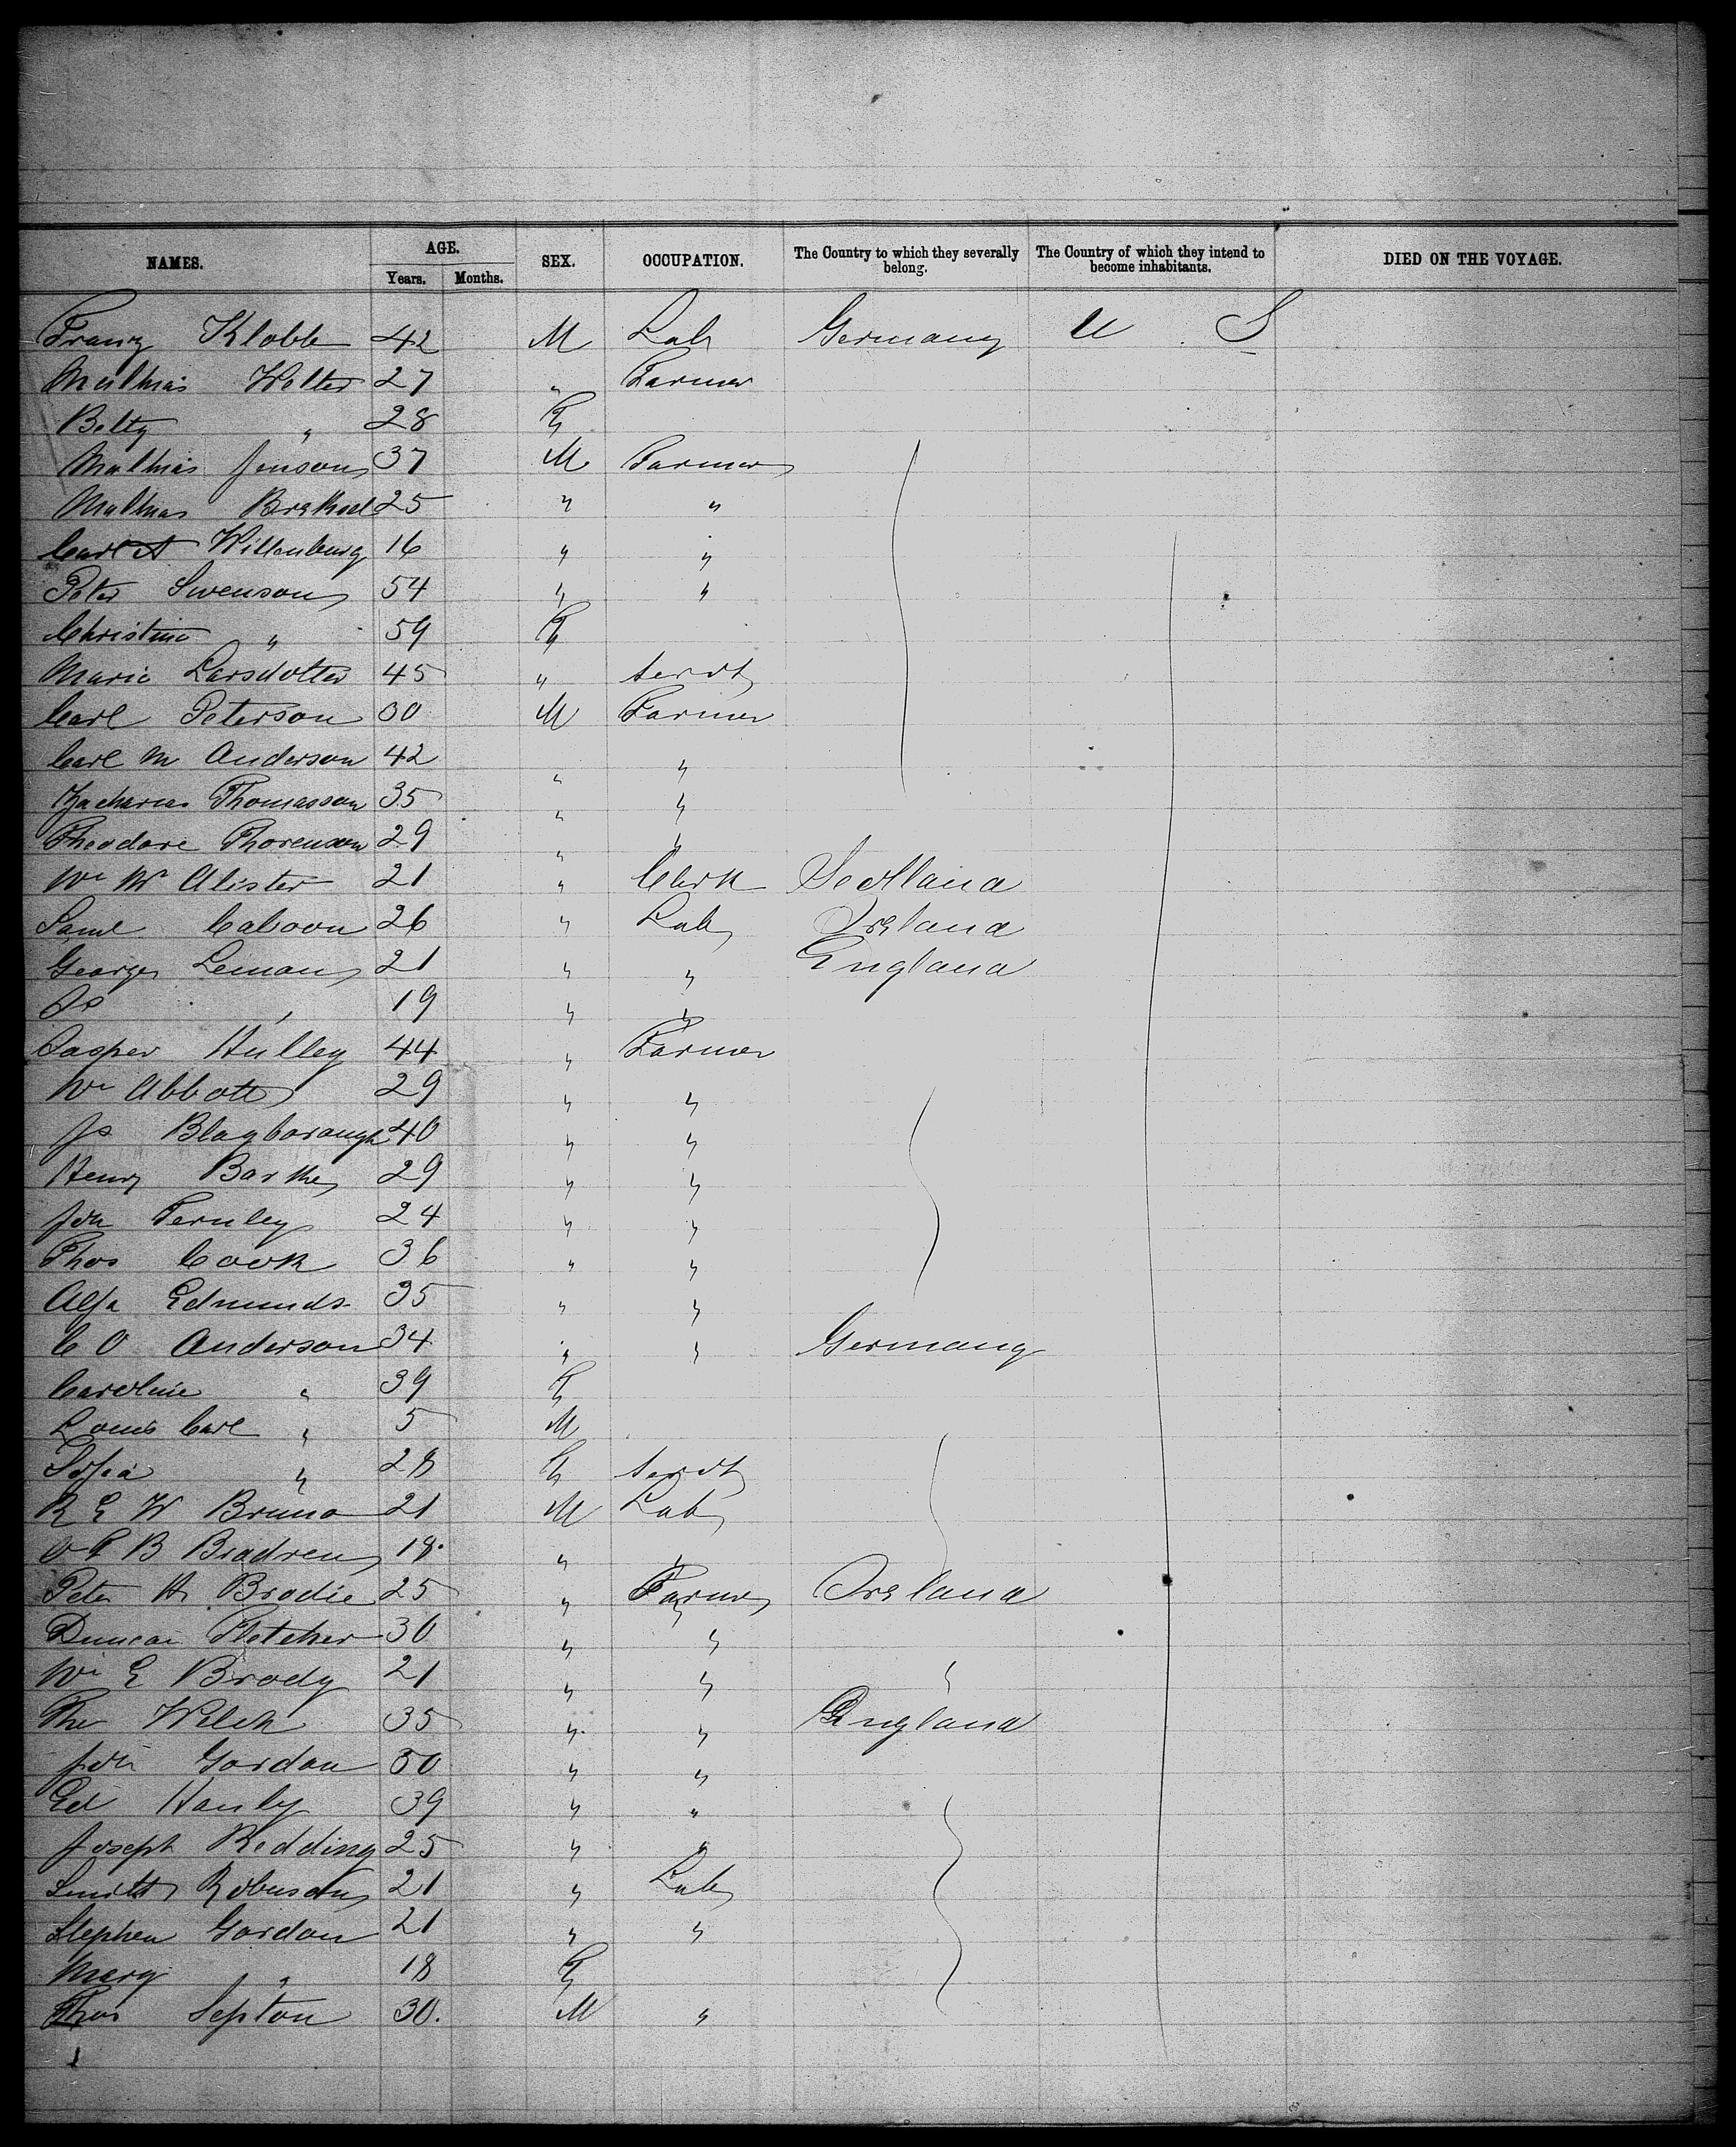 NAMES. AGE. SEX. OCCUPATION. The Country to which they severally belong. The Country of which they intend to become inhabitants. DIED ON THE VOYAGE.
Years. Months.
Franz Klobb 42 M Lab Germany U S
Mathias Wolter 27 " Farmer
Betty " 28 F
Mathias Jenson 37 M Farmer
Mathias 25 " "
Carl A Willenburg 16 " "
Peter Swenson 54 " "
Christine " 59 F
Maria Larsdotter 45 " Servt
Carl Peterson 30 M Farmer
Carl M Anderson 42 " "
Zacharias Thomasson 35 " "
Theodore Thorenson 29 " "
Wm Mc Alister 21 " Clerk Scotland
Saml Cahoon 26 " Lab Ireland
George Leman 21 " " England
Js " 19 " "
Jasper Hulley 44 " Farmer
Wm Abbott 29 " "
Js Blagborough 40 " "
Henry Barthe 29 " "
Jon Fernley 24 " "
Thos Cook 36 " "
Alfa Edmunds 35 " "
C O Anderson 34 " " Germany
Caroline " 39 F
Louis Carl " 5 M
Sofia " 28 F Servt
R E W Bruno 21 M Lab
B 18 " "
Peter H Brodie 25 " Farmer Ireland
Duncan Fletcher 30 " "
Wm E Brody 21 " " "
Tho Welch 35 " " England
Jon Gordon 50 " "
Ed Hanby 39 " "
Joseph Redding 25 " "
Smith Robinson 21 " Lab
Stephen Gordon 21 " "
Mary " 18 F
Thos Septon 30. M "